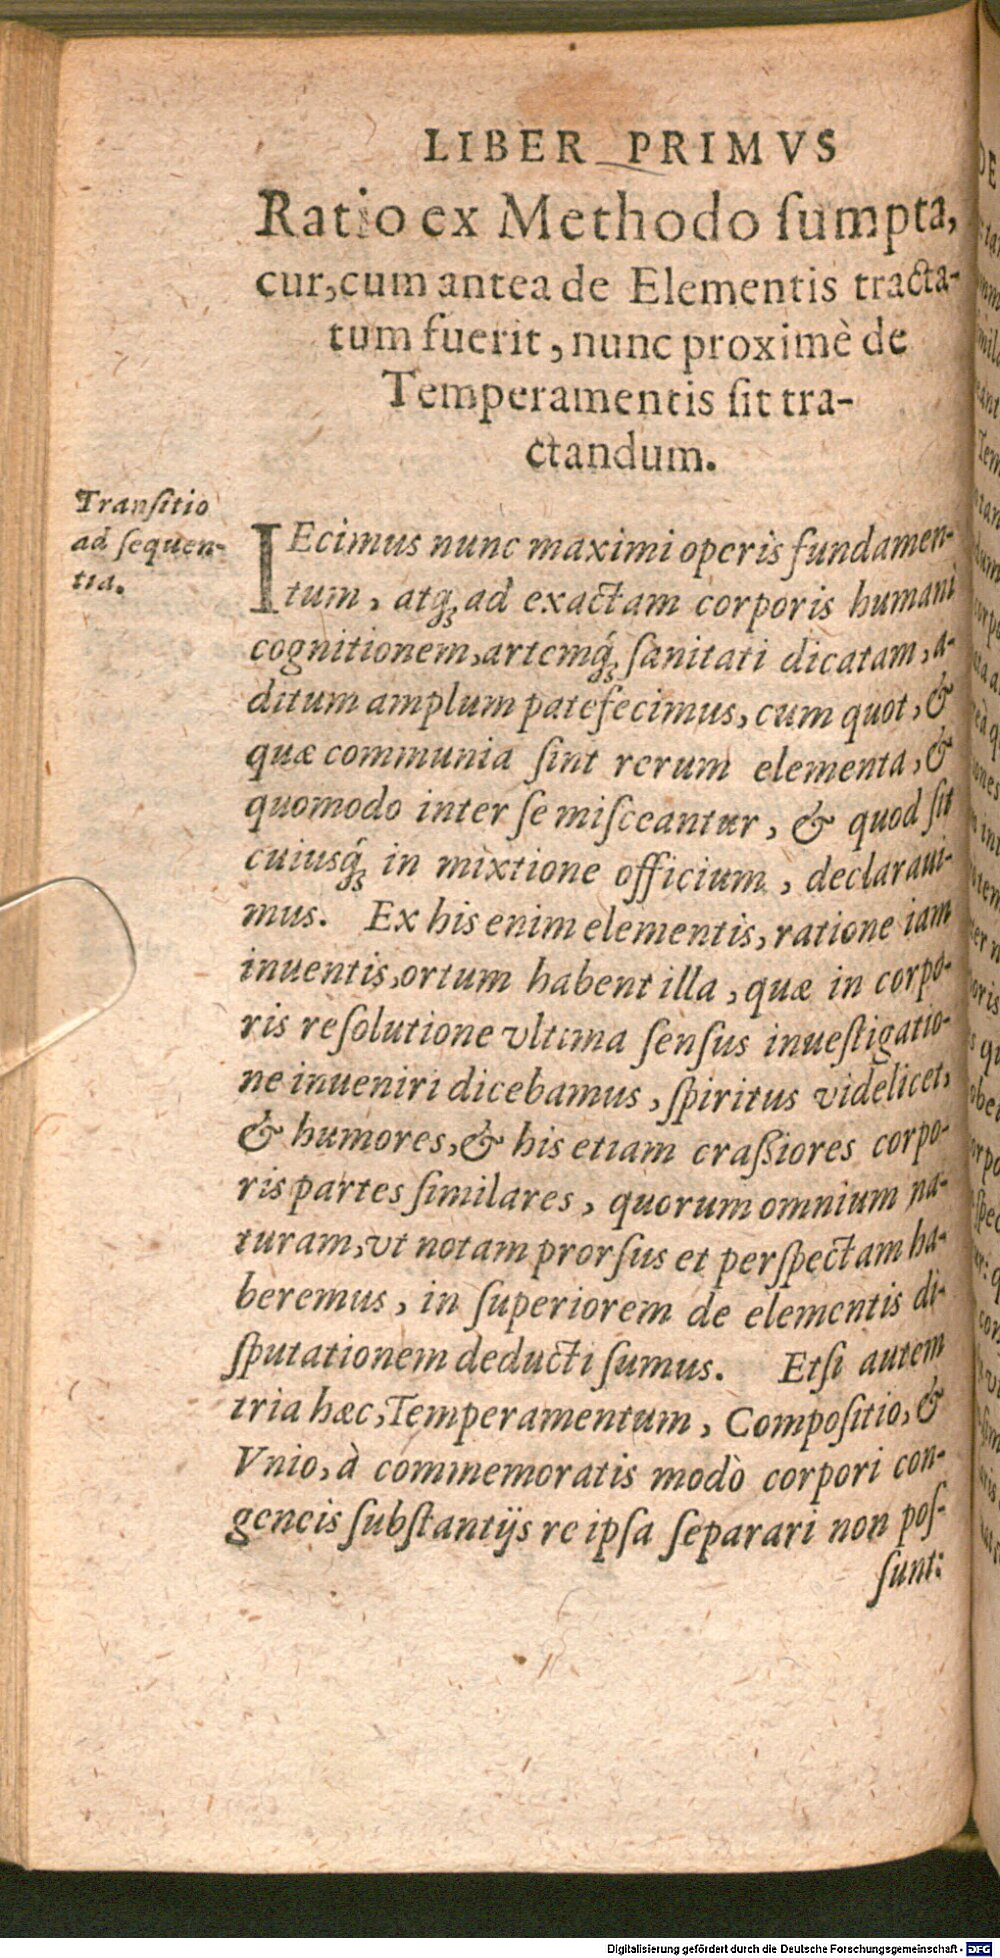 LIBER PRIMVS
Ratio ex Methodo ſumpta,
cur, cum antea de Elementis tracta-
tum fuerit, nunc proximè de
Temperamentis ſit tra-
ctandum.
Tranſitio
ad ſequen-
tia.
IEcimus nunc maximi operis fundamen-
tum, atq; ad exactam corporis humani
cognitionem, artemq́; ſanitati dicatam, a-
ditum amplum patefecimus, cum quot, &
quæ communia ſint rerum elementa, &
quomodo inter ſe miſceantur, & quod ſit
cuiusq́; in mixtione officium, declaraui-
mus. Ex his enim elementis, ratione iam
inuentis, ortum habent illa, quæ in corpo-
ris reſolutione vltima ſenſus inueſtigatio-
ne inueniri dicebamus, ſpiritus videlicet,
& humores, & his etiam craßiores corpo-
ris partes ſimilares, quorum omnium na-
turam, vt notam prorſus et perſpectam ha-
beremus, in ſuperiorem de elementis di-
ſputationem deducti ſumus. Etſi autem
tria hæc, Temperamentum, Compoſitio, &
Vnio, à commemoratis modò corpori con-
geneis ſubſtantijs re ipſa ſeparari non poſ-
ſunt:
Digitalisierung gefördert durch die Deutsche Forschungsgemeinschaft - DFG